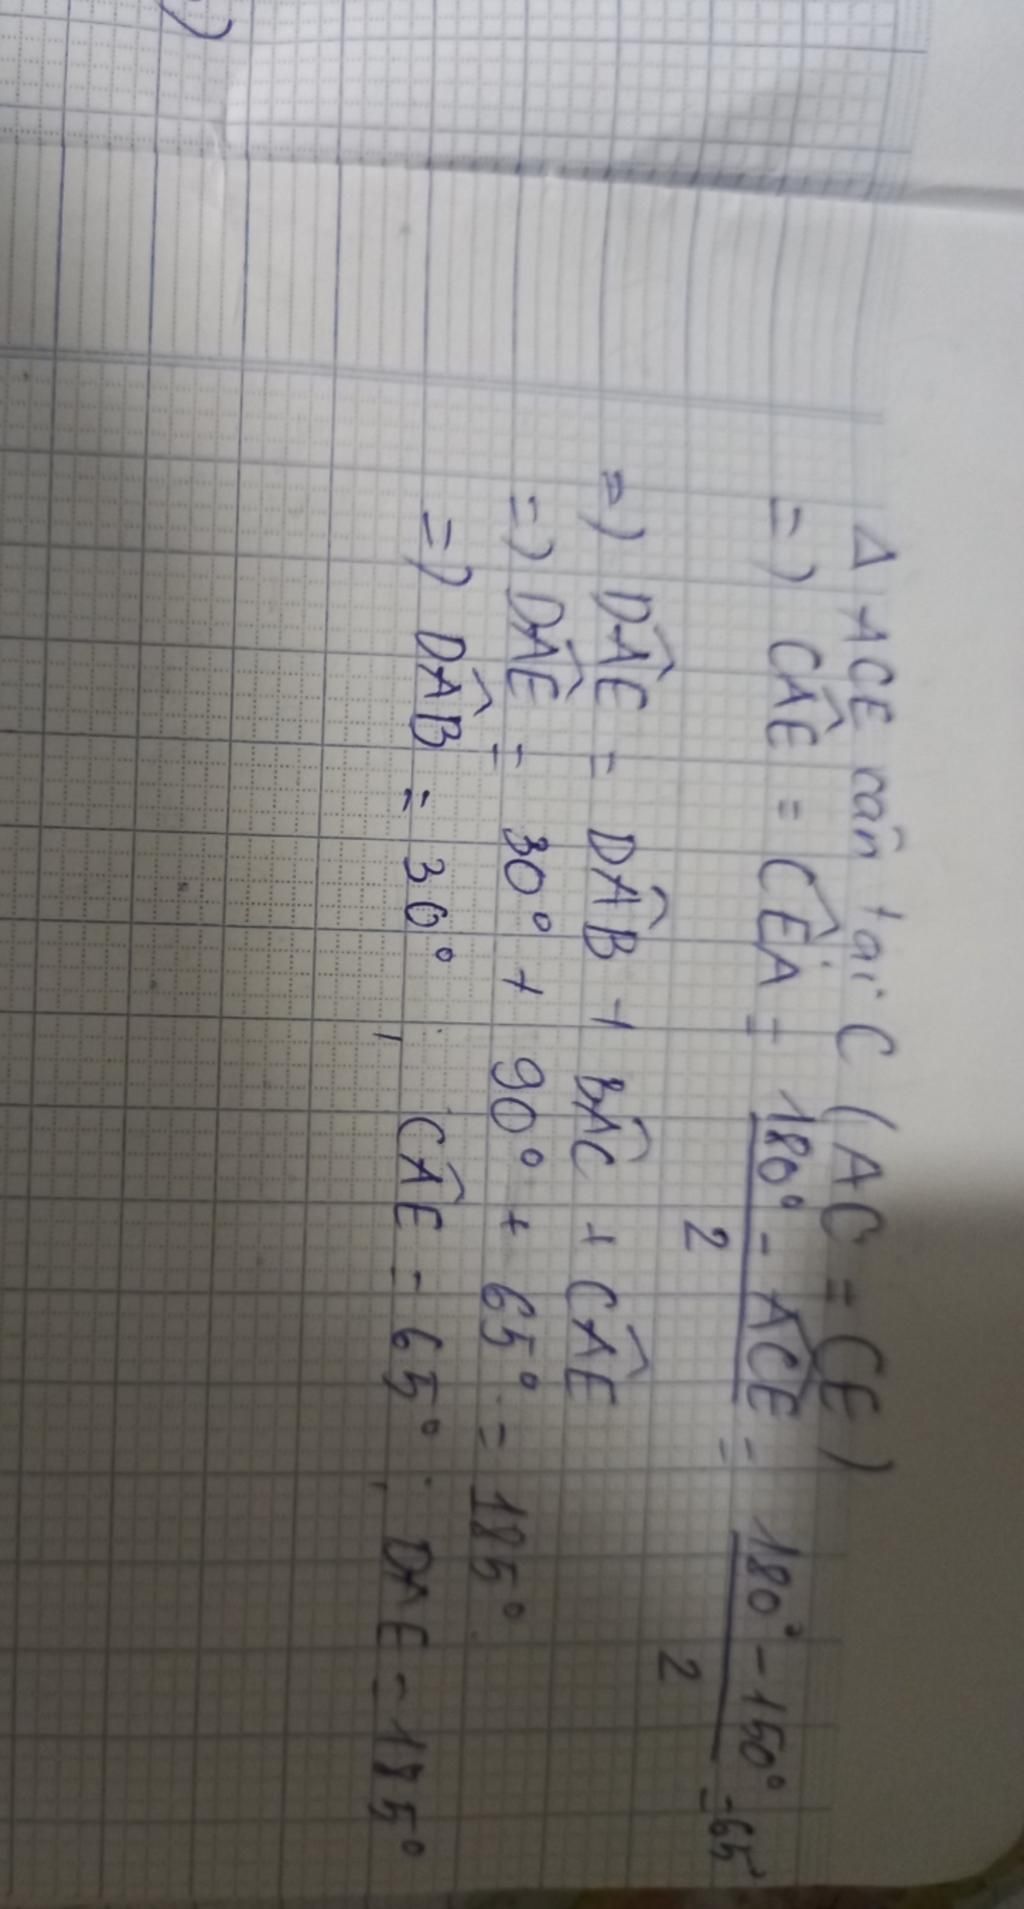 Δ ACE cân tại C (AC = CE)
=) CÂE = CÊA = (180° - AĈE)/2 = (180° - 150°)/2 = 65°
=) DÂE = DÂB + BÂC + CÂE
=) DÂE = 30° + 90° + 65° = 185°
=) DÂB = 30° ; CÂE = 65° ; DAE = 185°